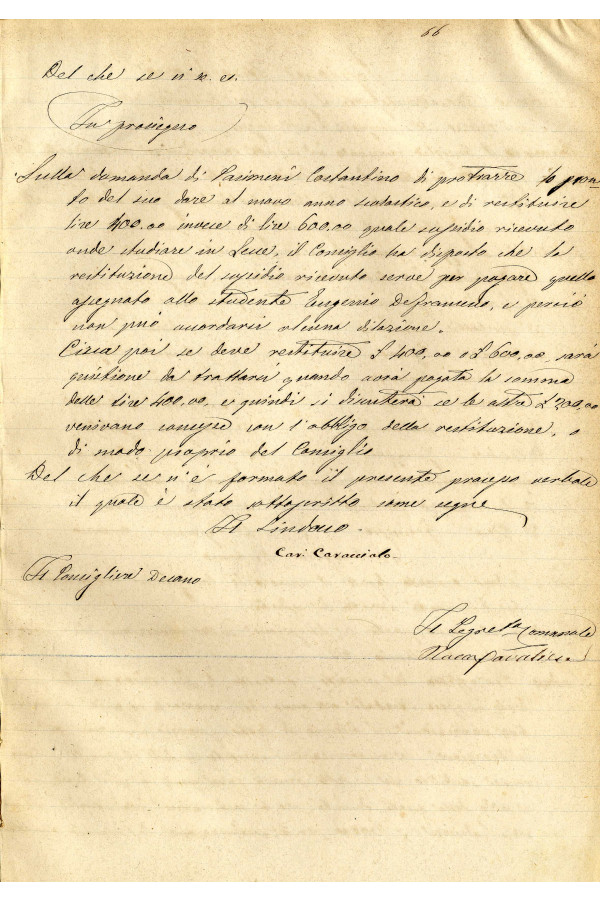 66
Del che se n'è
In prosieguo
Sulla domanda di Pasimeni Costantino di protrarre il paga-
to del suo dare al novo anno scolastico, e di restituire
lire 400,00 invece di lire 600,00 quale sussidio ricevuto
onde studiare in Lecce, il Consiglio ha disposto che la
restituzione del sussidio ricevuto serve per pagare quello
assegnato allo studente Eugenio Defrancesco, e perciò
non può accordarsi alcuna dilazione.
Circa poi se deve restituire £ 400,00 o £ 600,00, sarà
quistione da trattarsi quando avrà pagata la somma
delle lire 400,00, e quindi si discuterà se le altre £ 200,00
venivano concesse con l'obbligo della restituzione, o
di modo proprio del Consiglio
Del che se n'è formato il presente processo verbale
il quale è stato sottoscritto come segue
Il Sindaco
Cav. Caracciolo
Il Consigliere Decano
Il Segret.º Comunale